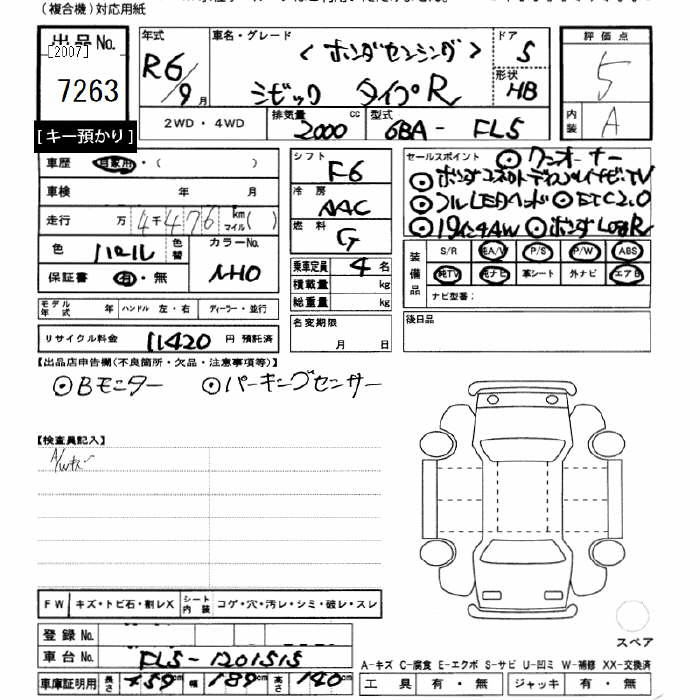 (複合機)対応用紙
出品No.
[2007]
7263
[キー預かり]
年式
R6/9月
車名・グレード
<ホンダセンシング>
シビック タイプR
ドア
5
形状
HB
評価点
5
内装
A
2WD・4WD
排気量
2000 cc
型式
6BA - FL5
車歴
自家用・( )
車検 年 月
走行 万 4千476 km マイル ( )
色
パール
色替
カラーNo.
NHO
保証書 有・無
シフト
F6
冷房
AAC
燃料
G
乗車定員 4 名
積載量 kg
総重量 kg
セールスポイント
ワンオーナー
ホンダコネクトディスプレイナビTV
フルLEDヘッド
ETC2.0
19インチAW
ホンダLOGR
装備品
S/R 純A/W P/S P/W ABS
純TV 純ナビ 革シート 外ナビ エアB
ナビ型番:
モデル年式 年 ハンドル 左・右 ディーラー・並行
名変期限
月 日
後日品
リサイクル料金 11420 円 預託済
【出品店申告欄(不良箇所・欠品・注意事項等)】
Bモニター パーキングセンサー
【検査員記入】
A/Wキズ
FW キズ・トビ石・割レX
シート内装 コゲ・穴・汚レ・シミ・破レ・スレ
登録No.
車台No. FL5-1201515
車庫証明用 長さ 459cm 幅 189cm 高さ 140cm
スペア
A-キズ C-腐食 E-エクボ S-サビ U-凹ミ W-補修 XX-交換済
工具 有・無 ジャッキ 有・無